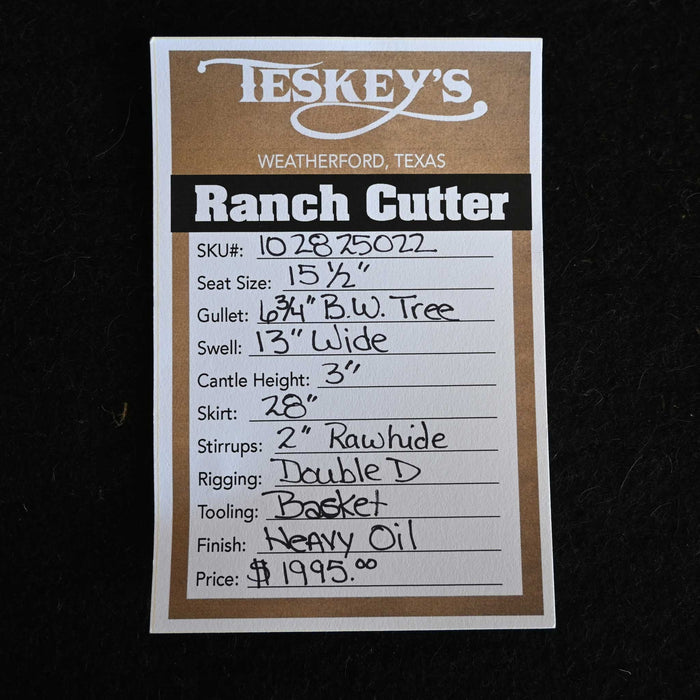 TESKEY'S
WEATHERFORD, TEXAS
Ranch Cutter
SKU#: 102825022
Seat Size: 15 1/2"
Gullet: 6 3/4" B.W. Tree
Swell: 13" Wide
Cantle Height: 3"
Skirt: 28"
Stirrups: 2" Rawhide
Rigging: Double D
Tooling: Basket
Finish: Heavy Oil
Price: $1995.00